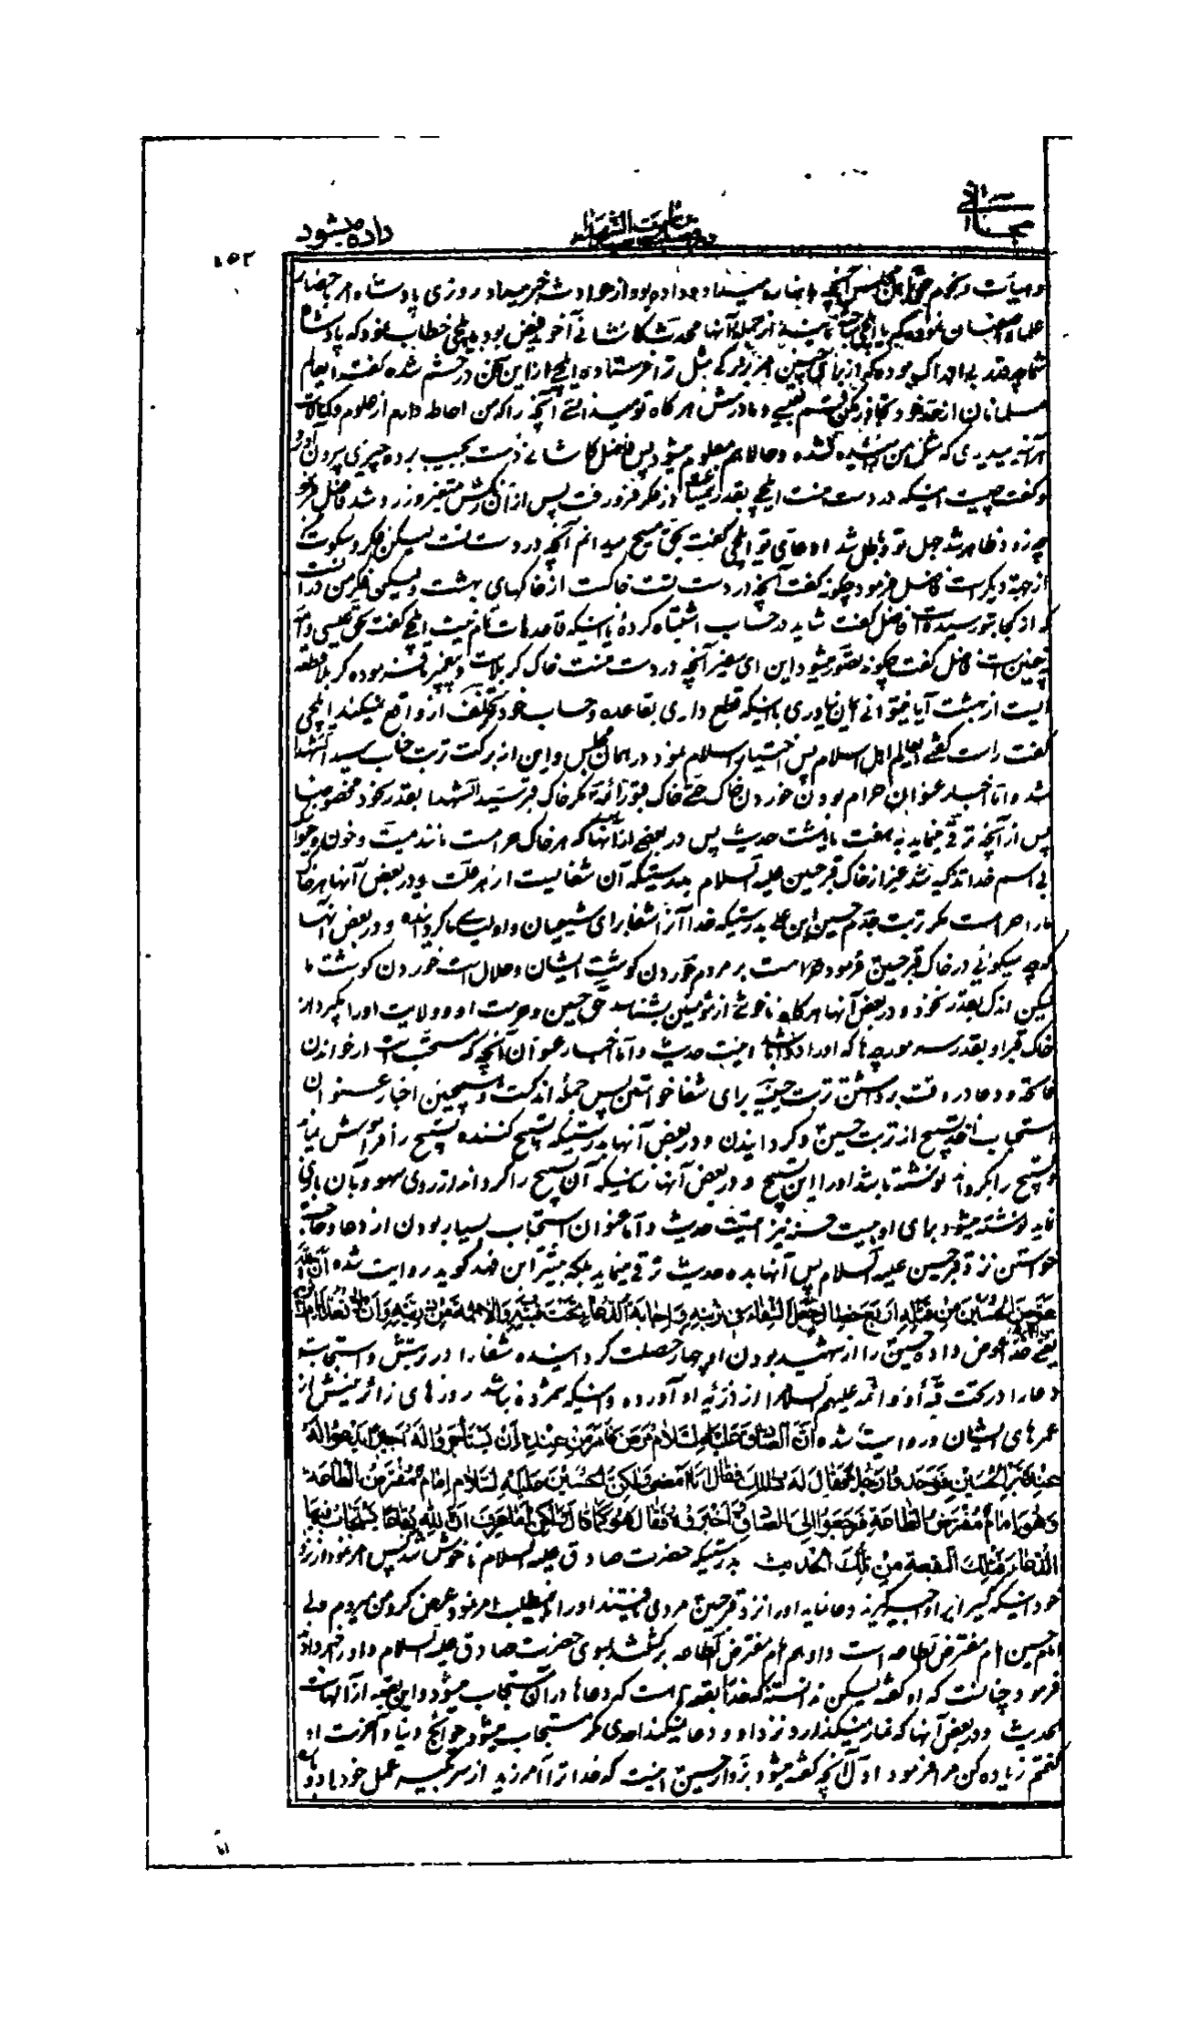 داده میشود
۱۵۲
علماء اصفهان نموده که با ایلچی از جمله آنها محمد کاشانی آخوند فیض بود بایلچی خطاب نمود که پادشاه
شما چقدر بی ادراک بوده که از برای چنین امر بزرگی مثل ترا فرستاده ایلچی از این سخن در خشم شده گفت ایعالم
مسلمانان از حد خود تجاوز مکن قسم بعیسی و مادرش هرگاه تو میدانستی آنچه را که من احاطه دارم از علوم و کمالات
هرآینه میدیدی که مثل من زائیده نشده و حالا هم معلوم میشود پس فاضل کاشانی دست بجیب برده چیزی بیرون آورد
و گفت چیست اینکه در دست منست ایلچی بقدر نیم ساعت در فکر فرو رفت پس از آن رنگش متغیر و زرد شد فاضل فرمود
چه زود ظاهر شد جهل تو و باطل شد ادعای تو ایلچی گفت بحق مسیح میدانم آنچه در دست تست لیکن فکر و سکوت من
از جهة دیگر است فاضل فرمود چگونه گفت آنچه در دست تست خاکست از خاکهای بهشت و لیکن فکر من در آنست
که از کجا بتو رسیده است فاضل گفت شاید در حساب اشتباه کردهٔ یا اینکه قاعدهات تمام نیست ایلچی گفت بحق عیسی و مادرش
نه چنین است فاضل گفت چگونه تصور میشود این ای سفیر آنچه در دست منست خاک کربلاست و پیغمبر ما فرموده کربلا قطعه
ایست از بهشت آیا میتوانی ایمان نیاوری با اینکه قطع داری بقاعده و حساب خود تخلف از واقع نمیکند ایلچی
گفت راست گفتی ایعالم اهل اسلام پس اختیار اسلام نمود در همان مجلس و این از برکت تربت جناب سید الشهدا
شد و اما اخبار عنوان حرام بودن خوردن خاک حتی خاک قبور ائمه مگر خاک قبر سید الشهدا بقدر نخود مخصوص شفا
پس از آنچه ترقی مینماید به هفت یا هشت حدیث پس در بعضی از آنها که هر خاک حرامست مانند میت و خون و حیوانیکه
بی اسم خدا تذکیه شد غیر از خاک قبر حسین علیه السلام بدرستیکه آن شفائیست از هر علت و در بعض آنها هر خاک
ما را حرامست مگر تربت جدم حسین ابن علی بدرستیکه خدا آنرا شفا برای شیعیان و اولیای ما گردانیده و در بعض آنها
که چه میگوئی در خاک قبر حسین فرمود حرامست بر مردم خوردن گوشت ایشان و حلال است خوردن گوشت ما
لیکن اندک بقدر نخود و در بعض آنها هرگاه ناخوشی از مؤمنین بشناسد حق حسین و حرمت او و ولایت او را بگیرد از
خاک قبر او بقدر سر مورچه ها که او را دوا باشد اینست حدیث و اما اخبار عنوان آنچه که مستحب است از خواندن
فاتحه و دعا در وقت برداشتن تربت حسینیه برای شفا خواستن پس جمله اندکست و همچنین اخبار عنوان
استحباب اخذ تسبیح از تربت حسین و گردانیدن و در بعض آنها بدرستیکه تسبیح کننده تسبیح را فراموش نماید
و تسبیح را بگرداند نوشته باشد او را این تسبیح و در بعض آنها زمانیکه آن تسبیح را گرداند از روی سهو و بآن بازی
نماید نوشته میشود برای او بیست حسنه نیز اینست حدیث و اما عنوان استحباب بسیار بودن از دعا و حاجت
خواستن نزد قبر حسین علیه السلام پس آنها بده حدیث ترقی مینماید بلکه بیشتر ابن فهد گوید روایت شده ان الله
عوض الحسین من قتله اربع خصال جعل الشفاء فی تربته و اجابة الدعاء تحت قبته و الائمة من ذریته و ان لا تعد ایام
یعنی خدا عوض داده حسین را از شهید بودن او چهار خصلت گردانیده شفا را در تربتش و استجابت
دعا را در تحت قبه او و ائمه علیهم السلام را از ذریه او آورده و اینکه شمرده نباشد روزهای زائرینش از
عمرهای ایشان و روایت شده ان الصادق علیه السلام مرض فامر من عنده ان یستأجروا له اجیرا یدعو له
عند قبر الحسین فوجدوا رجلا فقال له ذلک فقال انا امضی و لکن الحسین علیه السلام امام مفترض الطاعة
و هو امام مفترض الطاعة فرجعوا الی الصادق و اخبروه فقال هو کما قال و لکن اما عرف ان لله بقاعا یستجاب فیها
الدعاء فتلک البقعة من تلک الحدیث بدرستیکه حضرت صادق علیه السلام ناخوش شد پس امر نمود از نزد
خود اینکه گیرند برای او اجیر که نزد دعا نماید او را نزد قبر حسین مردی یافتند او را مطلب امر نمود عرض کرد من میروم ولی
امام حسین امام مفترض الطاعه است و او هم امام مفترض الطاعه برگشتند بسوی حضرت صادق علیه السلام و او را خبر دادند
فرمود چنانست که او گفته لیکن ندانسته که خدا را بقعه هاست که دعاها در آن مستجاب میشود و این بقعه از آنهاست
الحدیث و در بعض آنها که نماز نمیگذارد نزد او و دعا نمیکند احدی مگر مستجاب میشود حوائج دنیا و آخرت او
گفتم زیاده کن مرا فرمود اول آنچه گفته میشود بزوار حسین اینست که خدا ترا آمرزید از سر گیر عمل خود را و